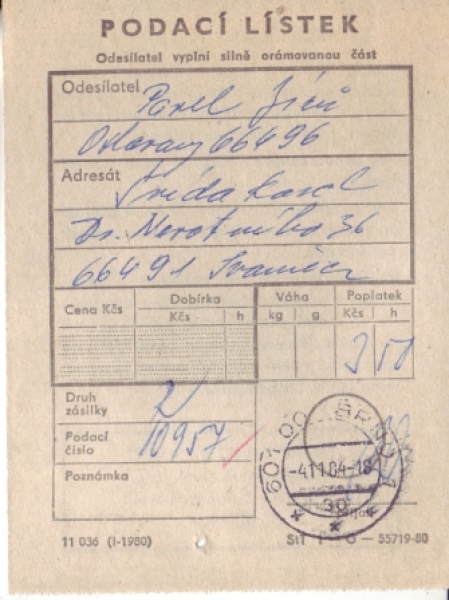 PODACÍ LÍSTEK
Odesílatel vyplní silně orámovanou část
Odesílatel Pavel
Oslavany 66496
Adresát
Frída Karel
Dr. Nerotního 36
66491 Ivančice
Cena Kčs
Dobírka
Kčs h
Váha
kg g
Poplatek
Kčs h
3 50
Druh zásilky R
Podací číslo 10957
Poznámka
601 00 BRNO 1
-4.11.84-18
30
11 036 (I-1980)
STÍ 1-G — 55719-80